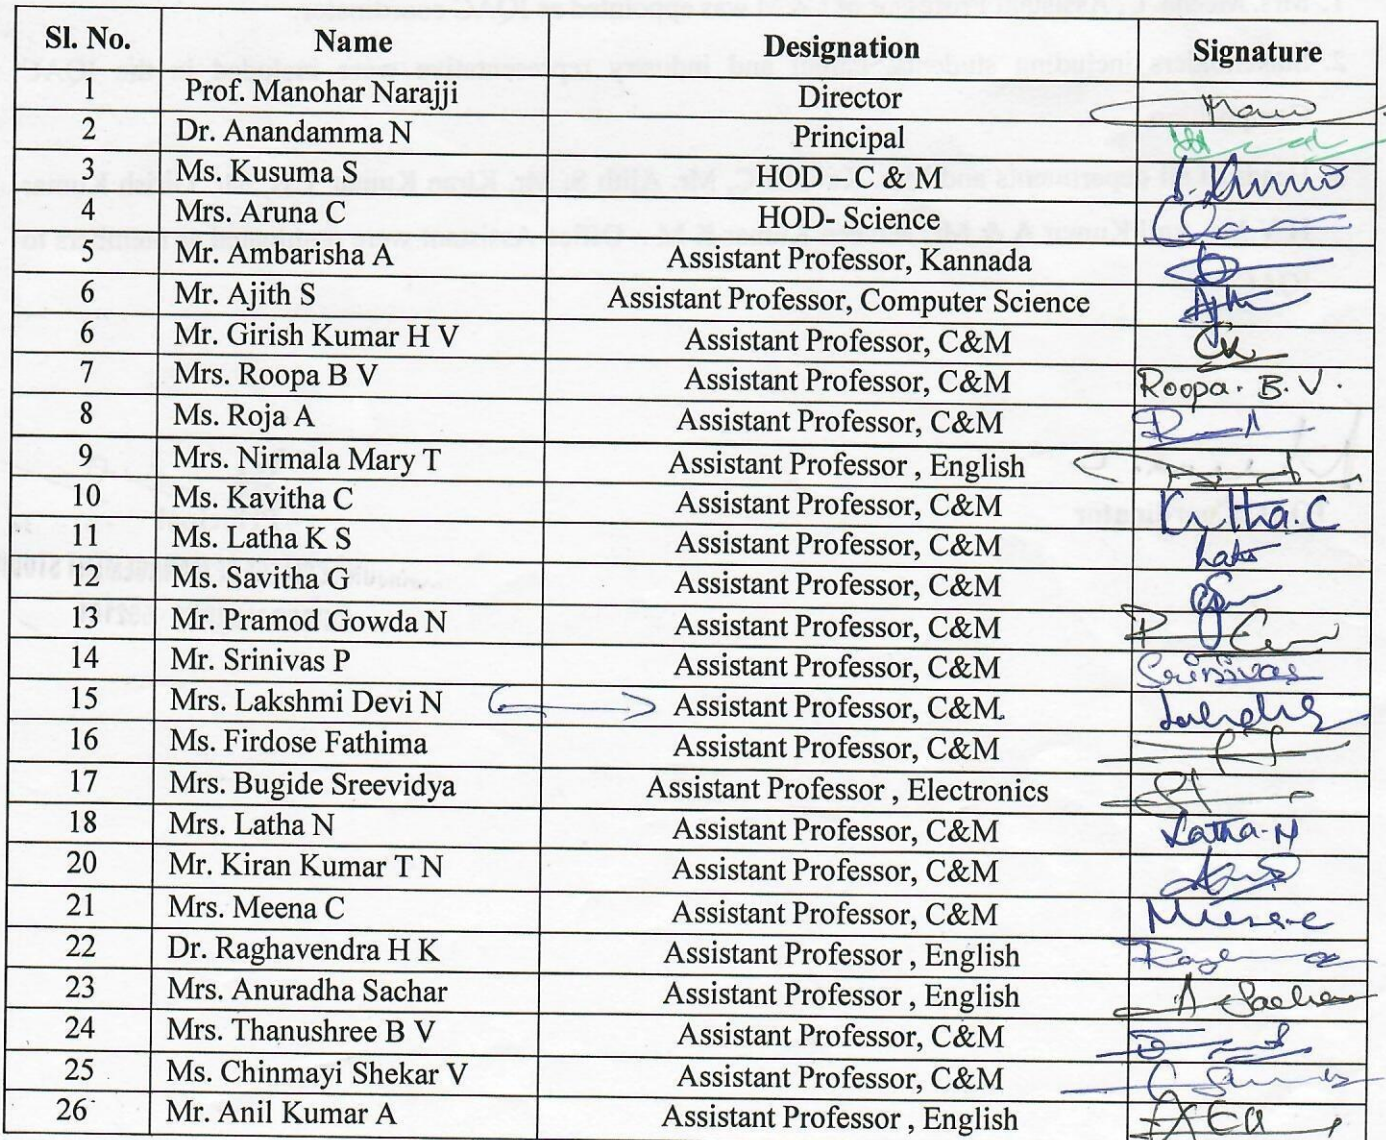 Sl. No. Name Designation Signature
1 Prof. Manohar Narajji Director
2 Dr. Anandamma N Principal
3 Ms. Kusuma S HOD - C & M
4 Mrs. Aruna C HOD- Science
5 Mr. Ambarisha A Assistant Professor, Kannada
6 Mr. Ajith S Assistant Professor, Computer Science
6 Mr. Girish Kumar H V Assistant Professor, C&M
7 Mrs. Roopa B V Assistant Professor, C&M Roopa. B. V.
8 Ms. Roja A Assistant Professor, C&M
9 Mrs. Nirmala Mary T Assistant Professor , English
10 Ms. Kavitha C Assistant Professor, C&M
11 Ms. Latha K S Assistant Professor, C&M Latha
12 Ms. Savitha G Assistant Professor, C&M
13 Mr. Pramod Gowda N Assistant Professor, C&M
14 Mr. Srinivas P Assistant Professor, C&M Srinivas
15 Mrs. Lakshmi Devi N Assistant Professor, C&M.
16 Ms. Firdose Fathima Assistant Professor, C&M
17 Mrs. Bugide Sreevidya Assistant Professor , Electronics
18 Mrs. Latha N Assistant Professor, C&M Latha-N
20 Mr. Kiran Kumar T N Assistant Professor, C&M
21 Mrs. Meena C Assistant Professor, C&M
22 Dr. Raghavendra H K Assistant Professor , English
23 Mrs. Anuradha Sachar Assistant Professor , English
24 Mrs. Thanushree B V Assistant Professor, C&M
25 Ms. Chinmayi Shekar V Assistant Professor, C&M
26 Mr. Anil Kumar A Assistant Professor , English